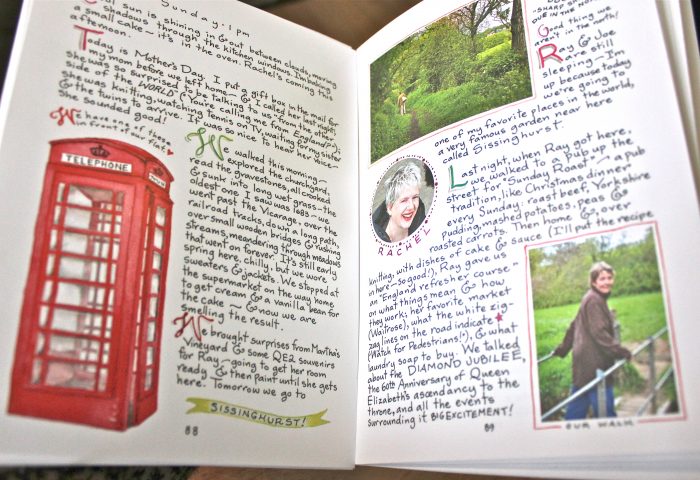 Sunday · 1 pm
sun is shining in & out between clouds, moving
through the kitchen windows. I'm baking
a small cake – it's in the oven. Rachel's coming this
afternoon.
Today is Mother's Day. I put a gift box in the mail for
my mom before we left home – & I called her last night;
she was so surprised to be talking to us "from the other
side of the WORLD" (You're calling me from England?!);
she was knitting, watching tennis on TV, waiting for my sister
& the twins to arrive. It was so nice to hear her voice –
She sounded good!
We have one of these
in front of our flat.
TELEPHONE
We walked this morning –
explored the churchyard,
read the gravestones, all cockeyed
& sunk into long wet grass – the
oldest one I saw was 1683 – we
went past the Vicarage, over the
railroad tracks, down a long path,
over small wooden bridges & rushing
streams, meandering through meadows
that went on forever. It's still early
spring here, chilly, but we wore
sweaters & jackets. We stopped at
the supermarket on the way home
to get cream & a vanilla bean for
the cake – & now we are
smelling the result.
We brought surprises from Martha's
Vineyard & some QE2 souvenirs
for Ray – going to get her room
ready & then paint until she gets
here. Tomorrow we go to
SISSINGHURST!
88
-SHARP
OVE IN THE NO
Good thing we
aren't in the north!
Ray & Joe
are still
sleeping – I'm
up because today
we're going to
one of my favorite places in the world,
a very famous garden near here
called Sissinghurst.
Last night, when Ray got here,
we walked to a pub up the
street for "Sunday Roast" – a pub
tradition, like Christmas dinner
every Sunday: roast beef, Yorkshire
pudding, mashed potatoes, peas &
roasted carrots. Then home &, over
RACHEL
knitting, with dishes of cake & sauce (I'll put the recipe
in here – so good!), Ray gave us
an "England refresher course" –
on what things mean & how
they work; her favorite market
(Waitrose), what the white zig-
zag lines on the road indicate
(Watch for Pedestrians!), & what
laundry soap to buy. We talked
about the DIAMOND JUBILEE,
the 60th Anniversary of Queen
Elizabeth's ascendancy to the
throne, and all the events
surrounding it BIG EXCITEMENT!
OUR WALK
89